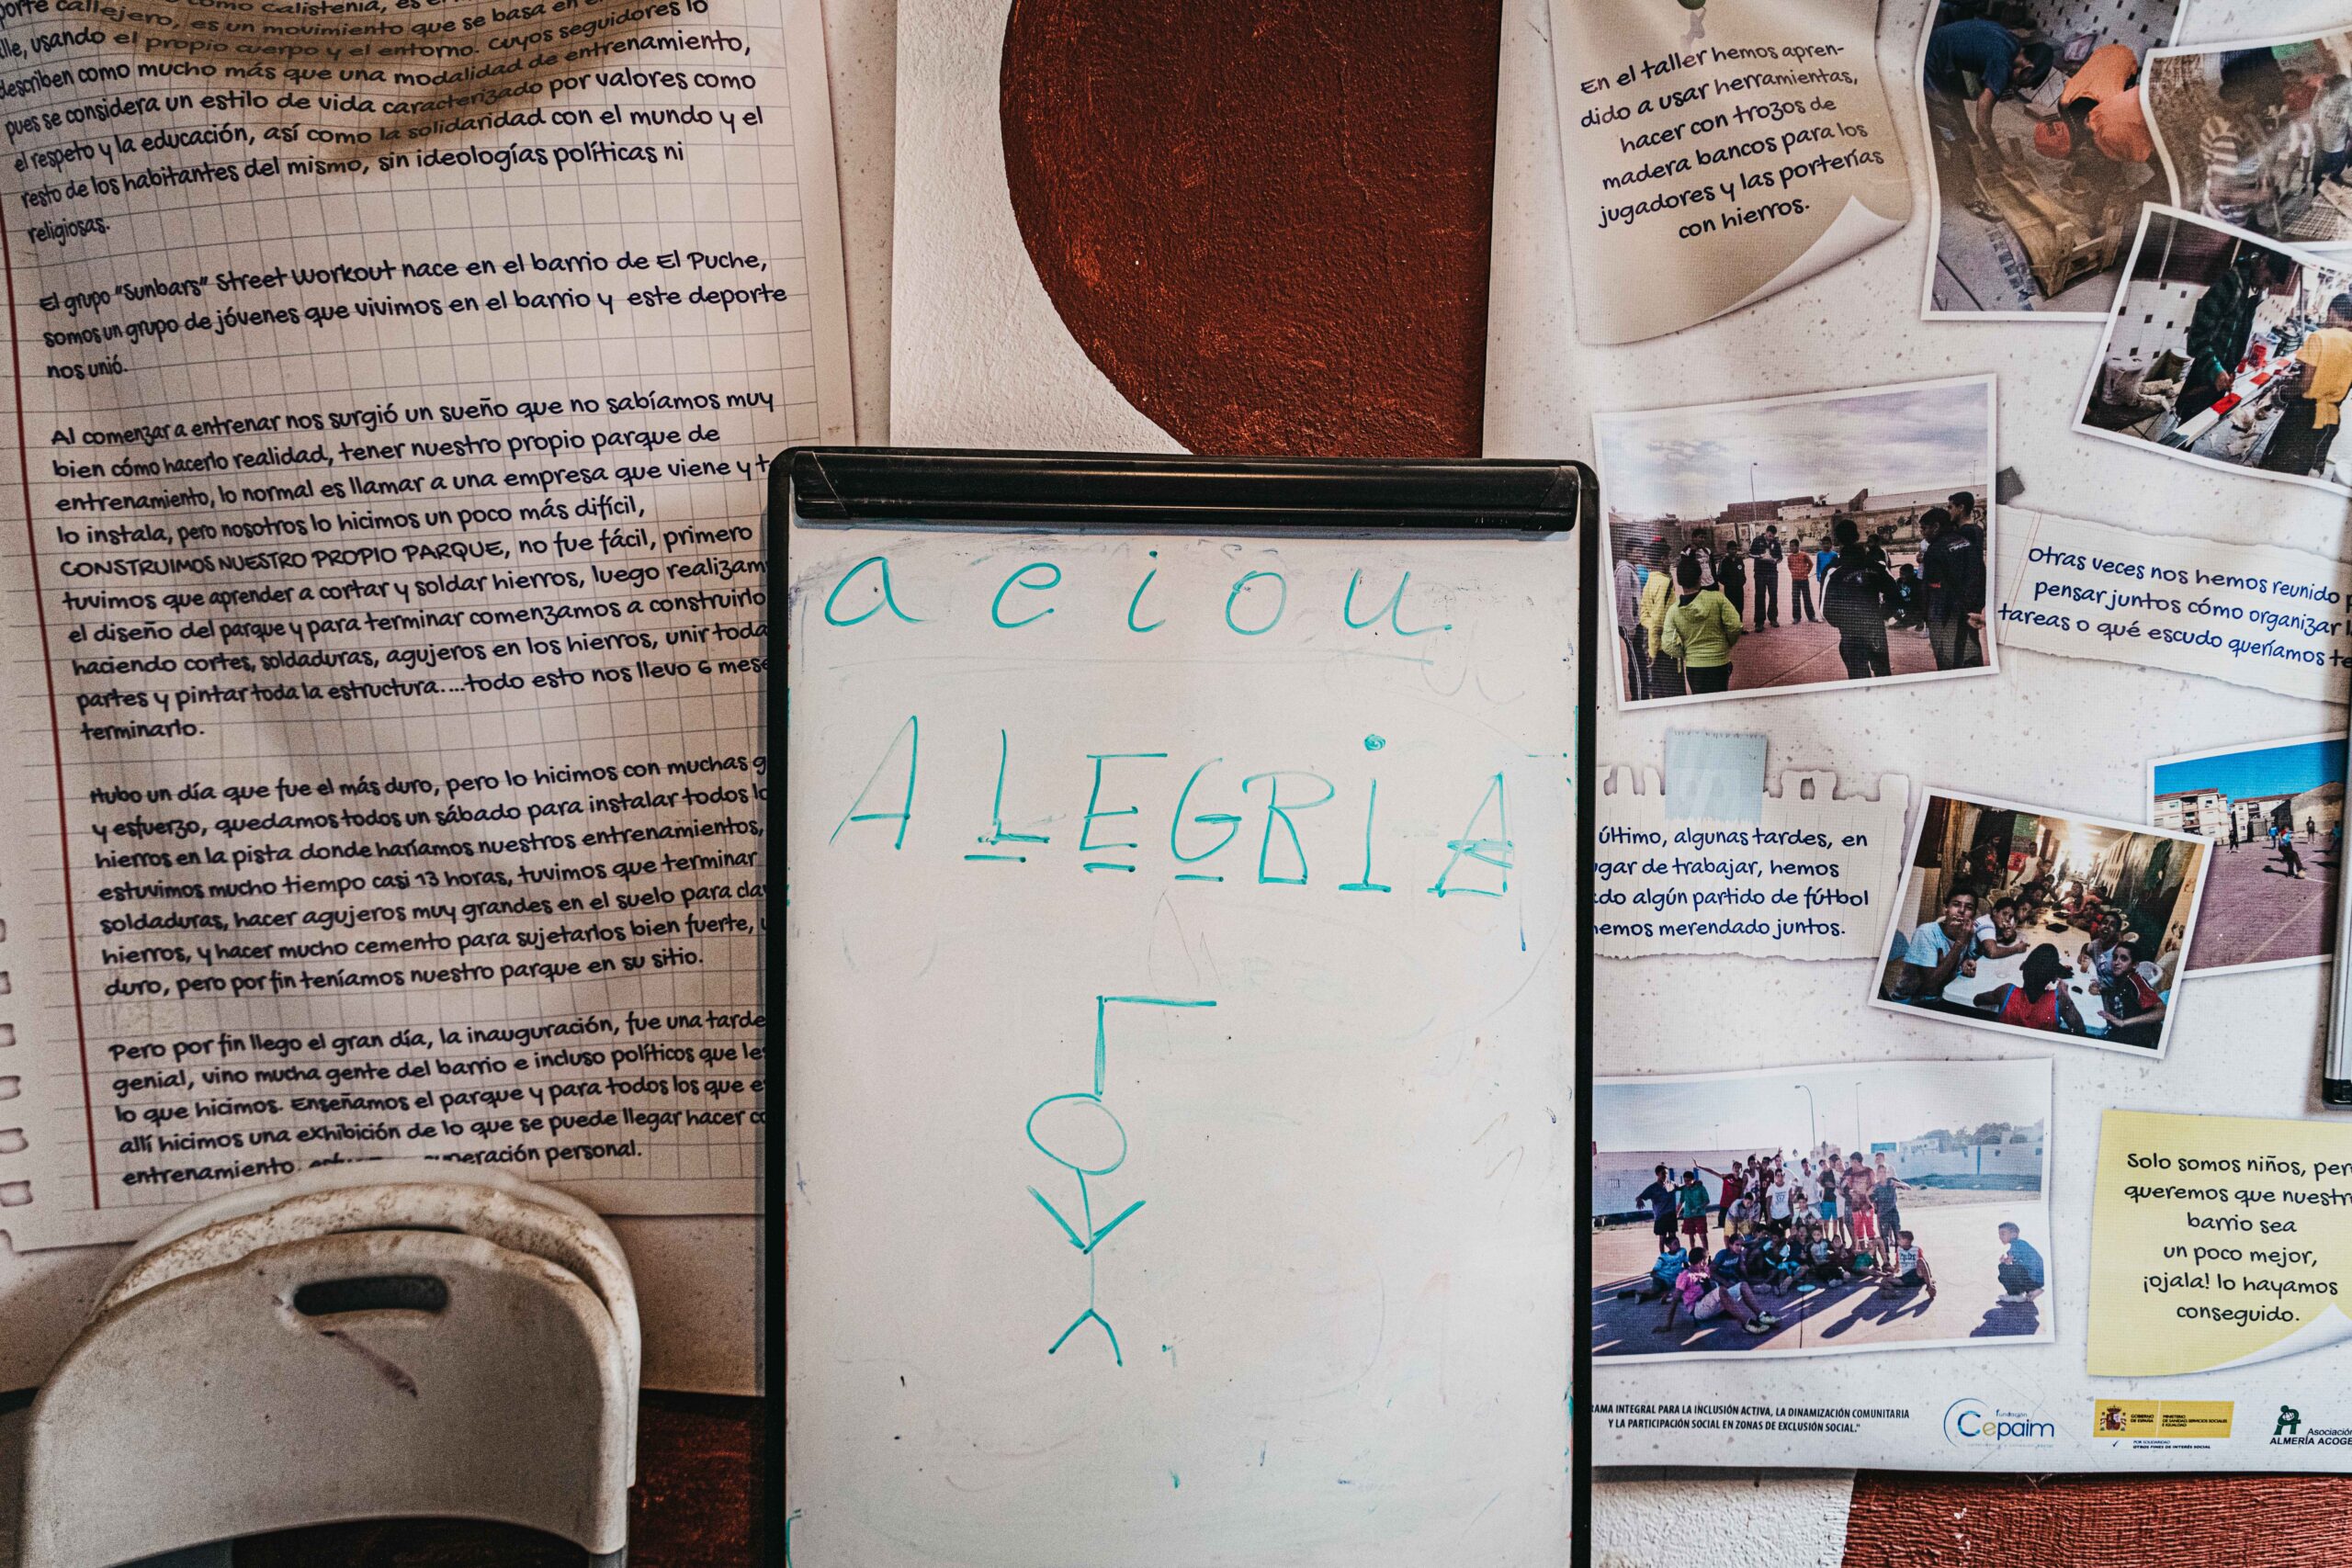 porte callejero, es un movimiento que se basa en
lle, usando el propio cuerpo y el entorno. Cuyos seguidores lo
describen como mucho más que una modalidad de entrenamiento,
pues se considera un estilo de vida caracterizado por valores como
el respeto y la educación, así como la solidaridad con el mundo y el
resto de los habitantes del mismo, sin ideologías políticas ni
religiosas.
El grupo "Sunbars" Street Workout nace en el barrio de El Puche,
somos un grupo de jóvenes que vivimos en el barrio y este deporte
nos unió.
Al comenzar a entrenar nos surgió un sueño que no sabíamos muy
bien cómo hacerlo realidad, tener nuestro propio parque de
entrenamiento, lo normal es llamar a una empresa que viene y t
lo instala, pero nosotros lo hicimos un poco más difícil,
CONSTRUIMOS NUESTRO PROPIO PARQUE, no fue fácil, primero
tuvimos que aprender a cortar y soldar hierros, luego realizam
el diseño del parque y para terminar comenzamos a construirlo
haciendo cortes, soldaduras, agujeros en los hierros, unir toda
partes y pintar toda la estructura....todo esto nos llevo 6 mese
terminarlo.
Hubo un día que fue el más duro, pero lo hicimos con muchas g
y esfuerzo, quedamos todos un sábado para instalar todos lo
hierros en la pista donde haríamos nuestros entrenamientos,
estuvimos mucho tiempo casi 13 horas, tuvimos que terminar
soldaduras, hacer agujeros muy grandes en el suelo para cla
hierros, y hacer mucho cemento para sujetarlos bien fuerte,
duro, pero por fin teníamos nuestro parque en su sitio.
Pero por fin llego el gran día, la inauguración, fue una tarde
genial, vino mucha gente del barrio e incluso políticos que les
lo que hicimos. Enseñamos el parque y para todos los que e
allí hicimos una exhibición de lo que se puede llegar hacer co
entrenamiento, peración personal.
a e i o u
ALEGRIA
En el taller hemos apren-
dido a usar herramientas,
hacer con trozos de
madera bancos para los
jugadores y las porterías
con hierros.
Otras veces nos hemos reunido p
pensar juntos cómo organizar l
tareas o qué escudo queríamos te
último, algunas tardes, en
ugar de trabajar, hemos
do algún partido de fútbol
emos merendado juntos.
Solo somos niños, per
queremos que nuestr
barrio sea
un poco mejor,
¡ojala! lo hayamos
conseguido.
RAMA INTEGRAL PARA LA INCLUSIÓN ACTIVA, LA DINAMIZACIÓN COMUNITARIA
Y LA PARTICIPACIÓN SOCIAL EN ZONAS DE EXCLUSIÓN SOCIAL."
fundación
Cepaim
GOBIERNO DE ESPAÑA
MINISTERIO DE SANIDAD, SERVICIOS SOCIALES E IGUALDAD
POR SOLIDARIDAD
OTROS FINES DE INTERÉS SOCIAL
Asociación
ALMERÍA ACOGE